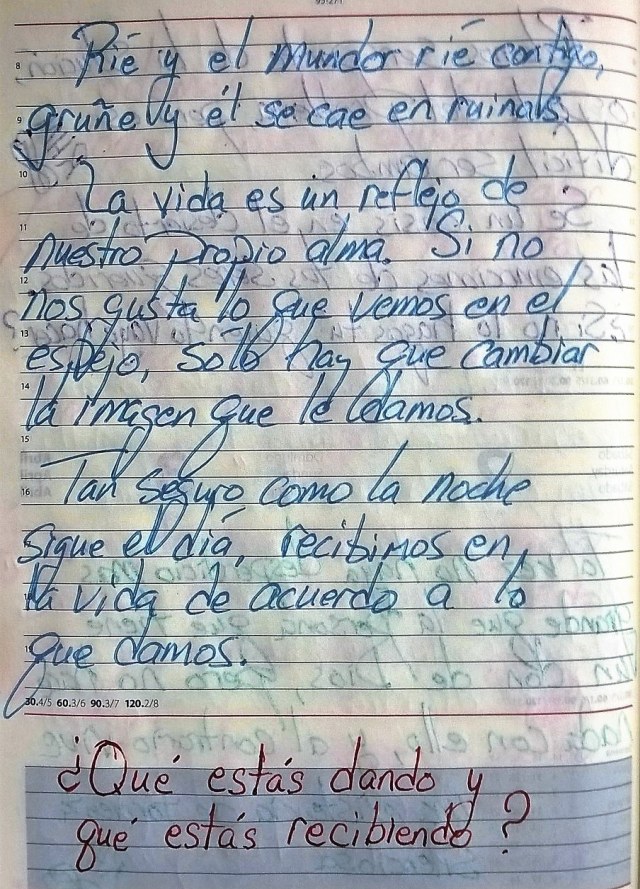 Rié y el mundor rié contigo,
gruñe y él se cae en ruinals.
La vida es un reflejo de
nuestro propio alma. Si no
nos gusta lo que vemos en el
espejo, solo hay que cambiar
la imagen que le damos.
Tan seguro como la noche
sigue el día, recibimos en
la vida de acuerdo a lo
que damos.
30.4/5 60.3/6 90.3/7 120.2/8
¿Qué estás dando y
qué estás recibiendo?